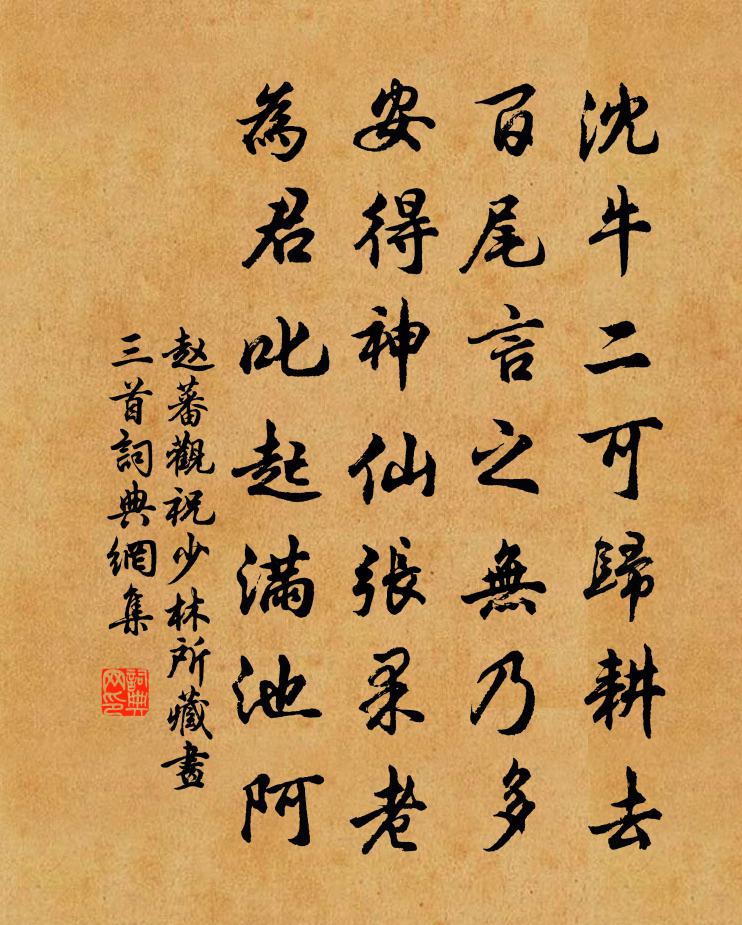 沈牛二可歸耕去
百尾言之無乃多
安得神仙張果老
為君叱起滿池阿
赵蕃觀祝少林所藏畫
三首詞典網集
詞典网印